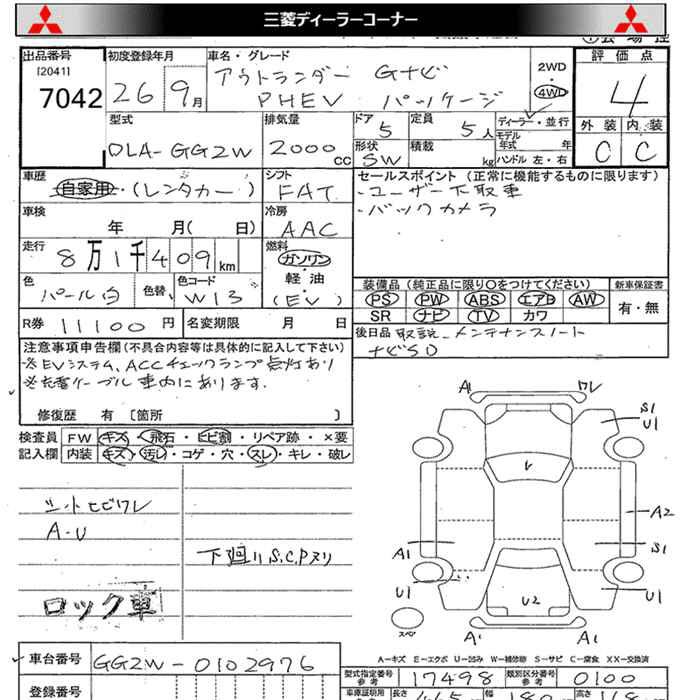 三菱ディーラーコーナー
出品番号
[2041]
7042
初度登録年月
26 9月
車名・グレード
アウトランダー Gナビ
PHEV パッケージ
2WD
・
4WD
評価点
4
外装 内装
C C
型式
DLA-GG2W
排気量
2000cc
ドア
5
定員
5人
ディーラー・並行
モデル年式 年
形状
SW
積載
kg
ハンドル 左・右
車歴
自家用・(レンタカー)
シフト
FAT
セールスポイント (正常に機能するものに限ります)
・ユーザー下取車
・バックカメラ
車検
年 月( 日)
冷房
AAC
走行
8万1千409km
燃料
ガソリン
軽・油
(EV)
色
パール白
色替
色コード
W13
装備品 (純正品に限り○をつけてください)
新車保証書
PS PW ABS エアB AW
SR ナビ TV カワ
有・無
R券 11100円
名変期限 月 日
後日品 取説 メンテナンスノート
ナビSD
注意事項申告欄 (不具合内容等は具体的に記入して下さい)
※EVシステム、ACCチェックランプ点灯あり
※充電ケーブル車内にあります。
修復歴 有 [箇所 ]
検査員記入欄
FW キズ・飛石・ヒビ割・リペア跡・×要
内装 キズ・汚レ・コゲ・穴・スレ・キレ・破レ
シートヒビワレ
A-U
下廻りS.C.Pヌリ
ロック車
A1
ワレ
S1
U1
V
A2
A1
S1
U1
U1
U2
スペア
A1
A1
A-キズ E-エクボ U-凹み W-補修跡 S-サビ C-腐食 XX-交換済
車台番号
GG2W-0102976
型式指定番号 参考
17498
類別区分番号 参考
0100
登録番号
車庫証明用
長さ
幅
高さ